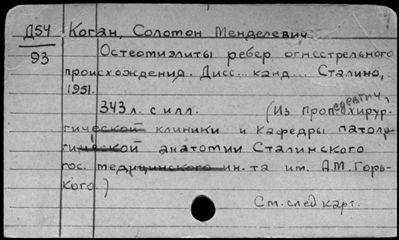 Д54 Коган, Соломон Менделевич.
93 Остеомиэлиты ребер огнестрельного
происхождения. Дисс... канд.... Сталино,
1951.
343 л. с илл. (Из пропедевтич. хирур-
гической клиники и кафедры патоло-
гической анатомии Сталинского
гос. медицинского ин-та им. А.М. Горь-
кого)
См. след карт.